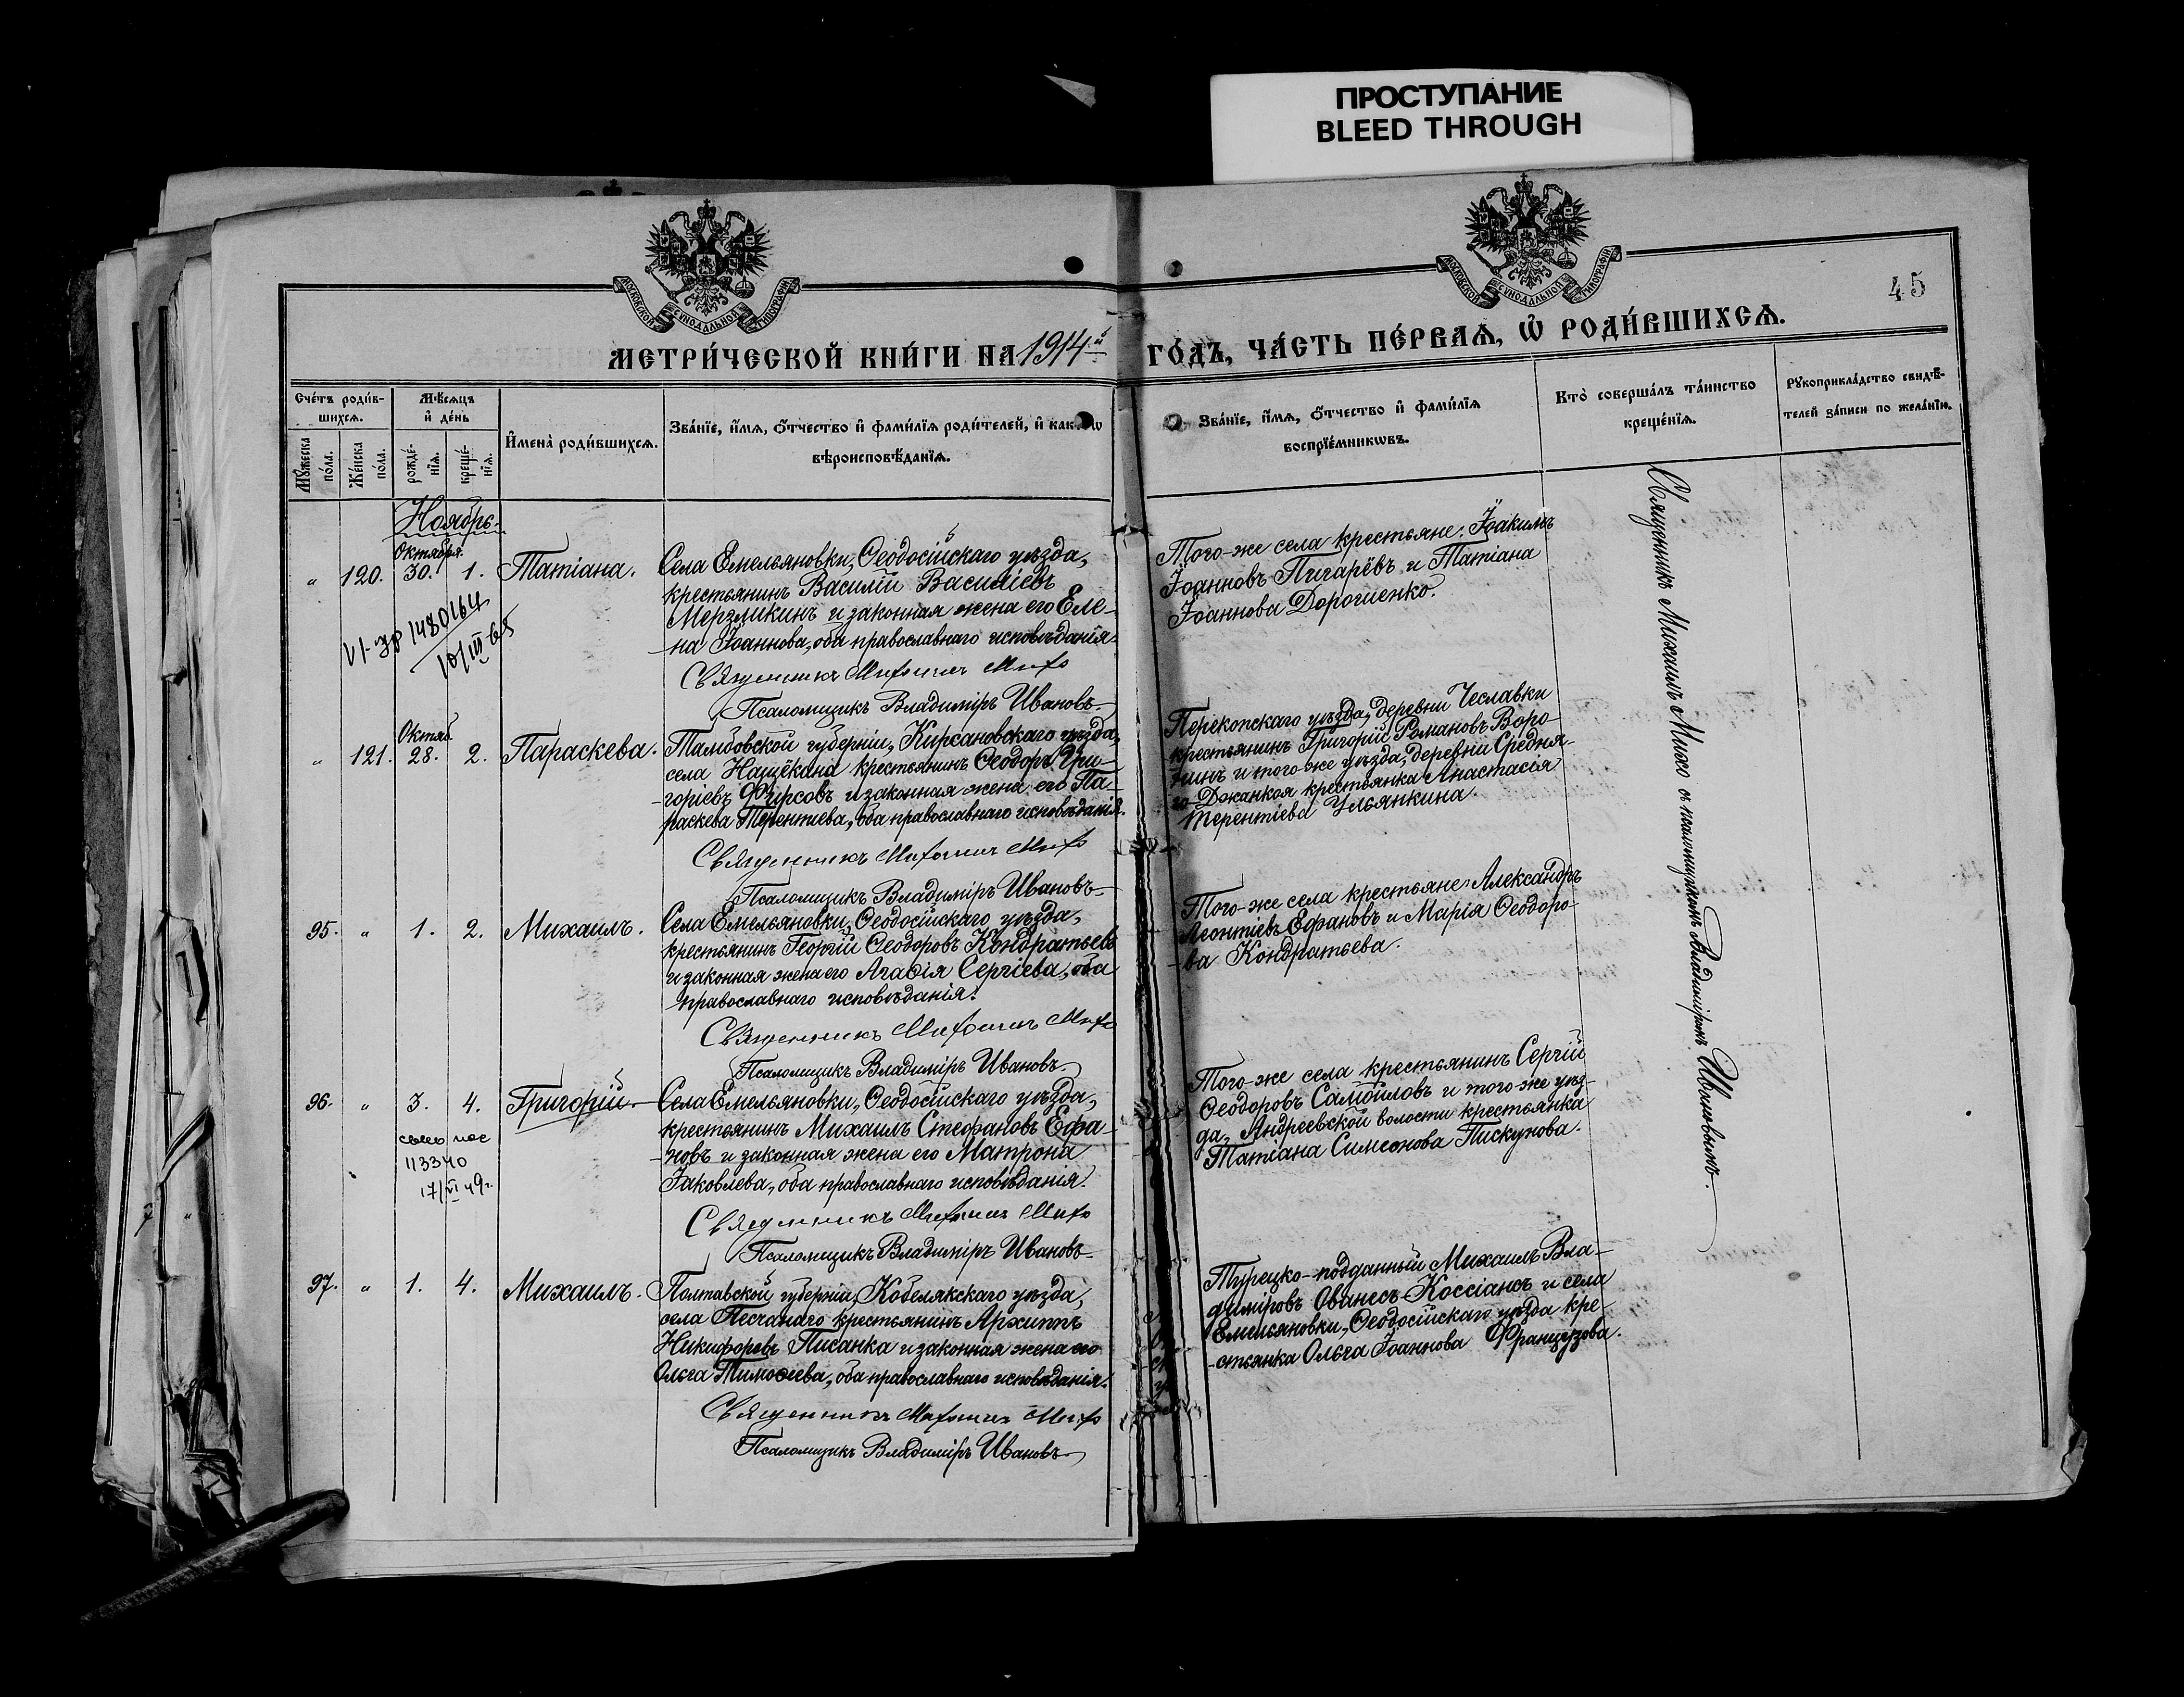 ПРОСТУПАНИЕ
BLEED THROUGH
МОСКОВСКОЙ СѴНОДАЛЬНОЙ ТИПОГРАФІИ
МОСКОВСКОЙ СѴНОДАЛЬНОЙ ТИПОГРАФІИ
45
МЕТРИ́ЧЕСКОЙ КНИ́ГИ НА 1914й
ГО́ДЪ, ЧА́СТЬ ПЕ́РВАѦ, Ѡ҆ РОДИ́ВШИХСѦ.
Сче́тъ роди́в-
шихсѧ.
Мѣ́сѧцъ
и҆ де́нь
Мꙋжеска по́ла.
Же́нска по́ла.
рожде́-
нїѧ.
креще́-
нїѧ.
И҆мена̀ роди́вшихсѧ.
Зва́нїе, и҆́мѧ, ѻ҆́тчество и҆ фами́лїѧ роди́телей, и҆ как
вѣроисповѣ́данїѧ.
Зва́нїе, и҆́мѧ, ѻ҆́тчество и҆ фами́лїѧ
воспрїе́мникѡвъ.
Кто̀ соверша́лъ та́инство
креще́нїѧ.
Рꙋкоприкла́дство свидѣ́-
телей за́писи по жела́нїю.
Ноябрь.
Октября.
" 120. 30. 1. Татіана.
Села Емельяновки, Ѳеодосійскаго уѣзда,
крестьянинъ Василій Василіевъ
Мерзликинъ и законная жена его Еле-
на Іоаннова, оба православнаго исповѣданія.
VI-ЯР 1480164
10/III 65
Священникъ Михаилъ Михо
Псаломщикъ Владиміръ Ивановъ
Того-же села крестьяне: Іоакимъ
Іоанновъ Пигарёвъ и Татіана
Іоаннова Дорошенко.
Октяб.
" 121. 28. 2. Параскева.
Тамбовской губерніи, Кирсановскаго уѣзда,
села Нащёкина крестьянинъ Ѳеодоръ Гри-
горіевъ Фирсовъ и законная жена его Па-
раскева Терентиева, оба православнаго исповѣданія.
Священникъ Михаилъ Михо
Псаломщикъ Владиміръ Ивановъ
Перекопскаго уѣзда, деревни Чеславки
крестьянинъ Григорій Романовъ Воро-
нинъ и того-же уѣзда, деревни Средня-
го-Джанкоя крестьянка Анастасія
Терентіева Ульянкина.
95. " 1. 2. Михаилъ.
Села Емельяновки, Ѳеодосійскаго уѣзда,
крестьянинъ Георгій Ѳеодоровъ Кондратьевъ
и законная жена его Агаѳія Сергіева, оба
православнаго исповѣданія.
Священникъ Михаилъ Михо
Псаломщикъ Владиміръ Ивановъ
Того-же села крестьяне: Александръ
Леонтіевъ Ефановъ и Марія Ѳеодоро-
ва Кондратьева.
96. " 3. 4. Григорій.
113340
17/VI 49г.
Села Емельяновки, Ѳеодосійскаго уѣзда,
крестьянинъ Михаилъ Стефановъ Ефа-
новъ и законная жена его Матрона
Іаковлева, оба православнаго исповѣданія.
Священникъ Михаилъ Михо
Псаломщикъ Владиміръ Ивановъ
Того-же села крестьянинъ Сергій
Ѳеодоровъ Самойловъ и того-же уѣз-
да, Андреевской волости крестьянка
Татіана Симеонова Пискунова.
97. " 1. 4. Михаилъ.
Полтавской губерніи, Кобелякскаго уѣзда,
села Песчанаго крестьянинъ Архиппъ
Никифоровъ Писанка и законная жена его
Ольга Тимоѳеева, оба православнаго исповѣданія.
Священникъ Михаилъ Михо
Псаломщикъ Владиміръ Ивановъ
Турецко-подданный Михаилъ Вла-
диміровъ Ованесъ-Коссіансъ и села
Емельяновки, Ѳеодосійскаго уѣзда кре-
стьянка Ольга Іоаннова Французова.
Священникъ Михаилъ Михо съ псаломщикомъ Владиміромъ Ивановымъ.